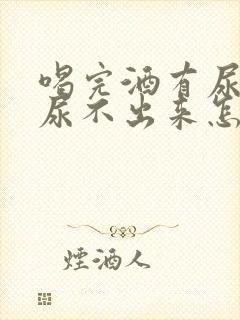 喝完酒有尿
尿不出来怎
煙酒人